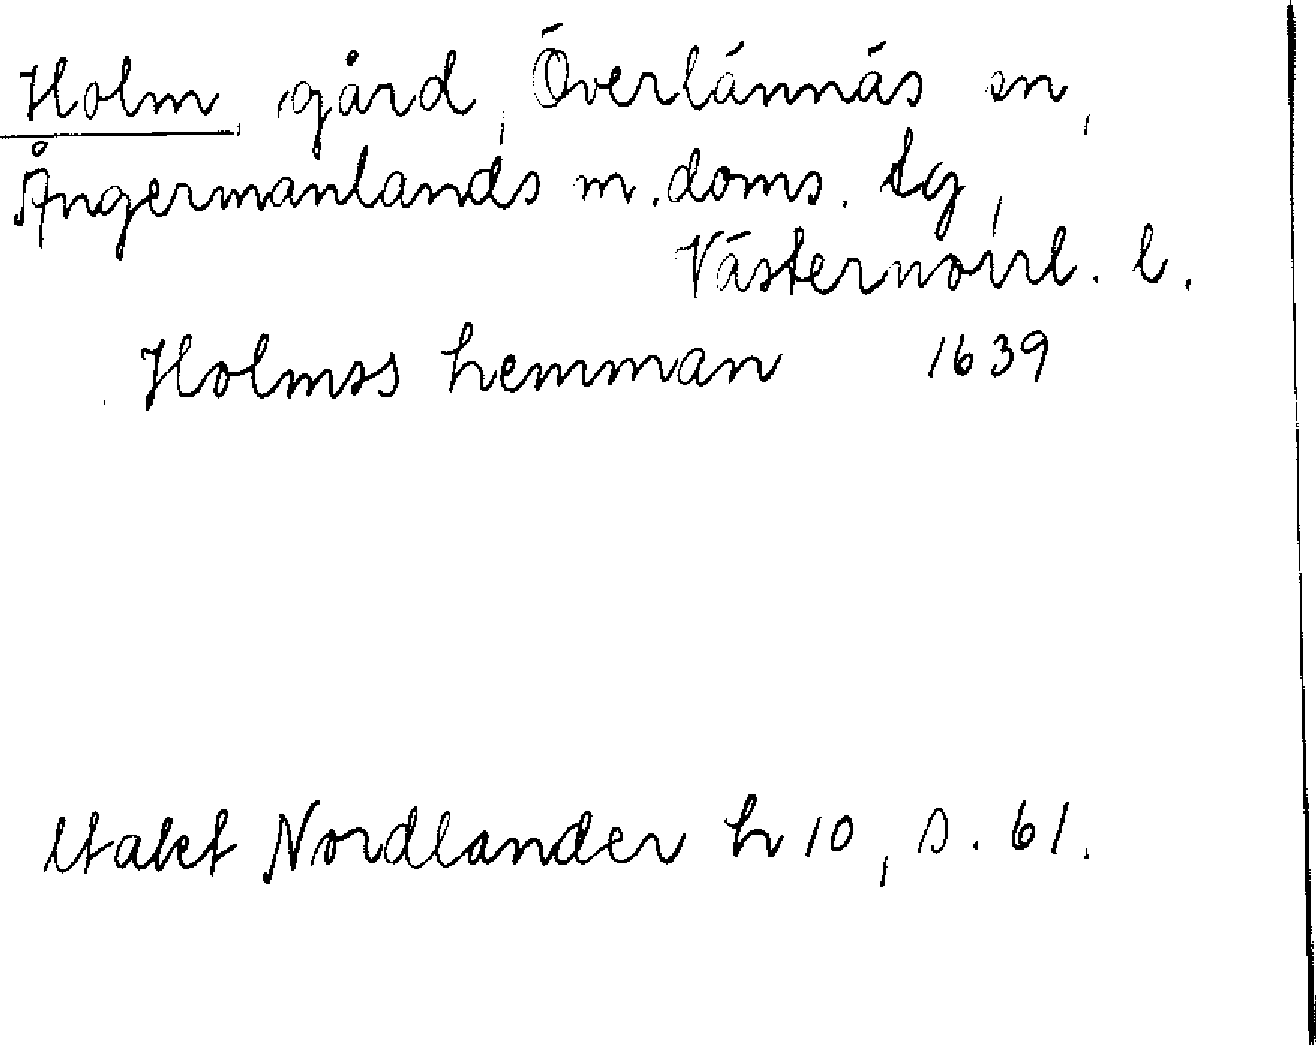 Holm, gård, Överlännäs sn,
Ångermanlands m. doms. tg,
Västernorrl. l.
Holmss hemman 1639
Utakt Nordlander h 10, s. 61.